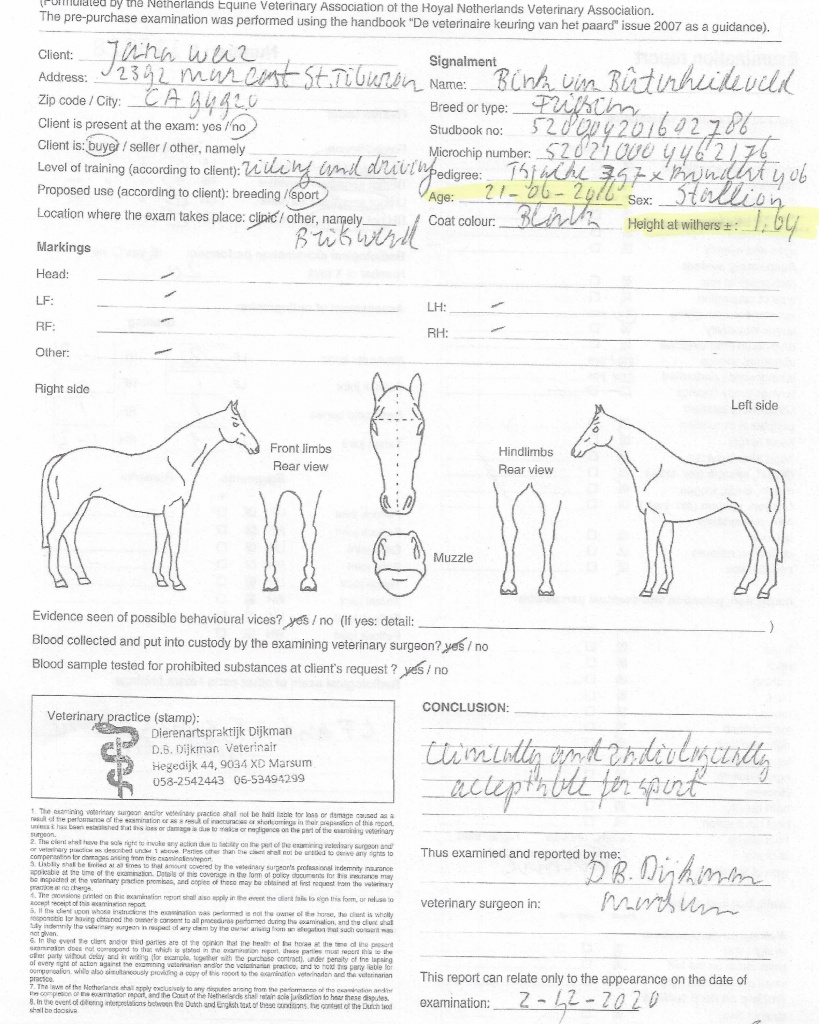 (Formulated by the Netherlands Equine Veterinary Association of the Royal Netherlands Veterinary Association.
The pre-purchase examination was performed using the handbook "De veterinaire keuring van het paard" issue 2007 as a guidance).
Client: Jana Weir
Address: 2392 Mar East St. Tiburon
Zip code / City: CA 94920
Client is present at the exam: yes / no
Client is: buyer / seller / other, namely
Level of training (according to client): riding and driving
Proposed use (according to client): breeding / sport
Location where the exam takes place: clinic / other, namely
Britswerd
Signalment
Name: Bink van
Breed or type: Friesian
Studbook no:
Microchip number:
Pedigree: Tsjacht 397 x 406
Age: 21-06-2016 Sex: Stallion
Coat colour: Black Height at withers ±: 1.64
Markings
Head: -
LF: -
RF: -
Other: -
LH: -
RH: -
Right side
Left side
Front limbs
Rear view
Hindlimbs
Rear view
Muzzle
Evidence seen of possible behavioural vices? yes / no (If yes: detail: )
Blood collected and put into custody by the examining veterinary surgeon? yes / no
Blood sample tested for prohibited substances at client's request ? yes / no
Veterinary practice (stamp):
Dierenartspraktijk Dijkman
D.B. Dijkman Veterinair
Hegedijk 44, 9034 XD Marsum
058-2542443 06-53494299
1. The examining veterinary surgeon and/or veterinary practice shall not be held liable for loss or damage caused as a
result of the performance of the examination or as a result of inaccuracies or shortcomings in their preparation of this report,
unless it has been established that this loss or damage is due to malice or negligence on the part of the examining veterinary
surgeon.
2. The client shall have the sole right to invoke any action due to liability on the part of the examining veterinary surgeon and/
or veterinary practice as described under 1 above. Parties other than the client shall not be entitled to derive any rights to
compensation for damages arising from this examination/report.
3. Liability shall be limited at all times to that amount covered by the veterinary surgeon's professional indemnity insurance
applicable at the time of the examination. Details of this coverage in the form of policy documents for this insurance may
be inspected at the veterinary practice premises, and copies of these may be obtained at first request from the veterinary
practice at no charge.
4. The provisions printed on this examination report shall also apply in the event the client fails to sign this form, or refuse to
accept receipt of this examination report.
5. If the client upon whose instructions the examination was performed is not the owner of the horse, the client is wholly
responsible for having obtained the owner's consent to all procedures performed during the examination, and the client shall
fully indemnify the veterinary surgeon in respect of any claim by the owner arising from an allegation that such consent was
not given.
6. In the event the client and/or third parties are of the opinion that the health of the horse at the time of the present
examination does not correspond to that which is stated in the examination report, these parties must report this to the
other party without delay and in writing (for example, together with the purchase contract), under penalty of the lapsing
of every right of action against the examining veterinarian and/or the veterinarian practice, and to hold this party liable for
compensation, while also simultaneously providing a copy of this report to the examination veterinarian and the veterinarian
practice.
7. The laws of the Netherlands shall apply exclusively to any disputes arising from the performance of the examination and/or
the completion of the examination report, and the Court of the Netherlands shall retain sole jurisdiction to hear these disputes.
8. In the event of differing interpretations between the Dutch and English text of these conditions, the content of the Dutch text
shall be decisive.
CONCLUSION:
Clinically and radiologically
acceptable for sport
Thus examined and reported by me:
D.B. Dijkman
veterinary surgeon in: Marsum
This report can relate only to the appearance on the date of
examination: 2-12-2020